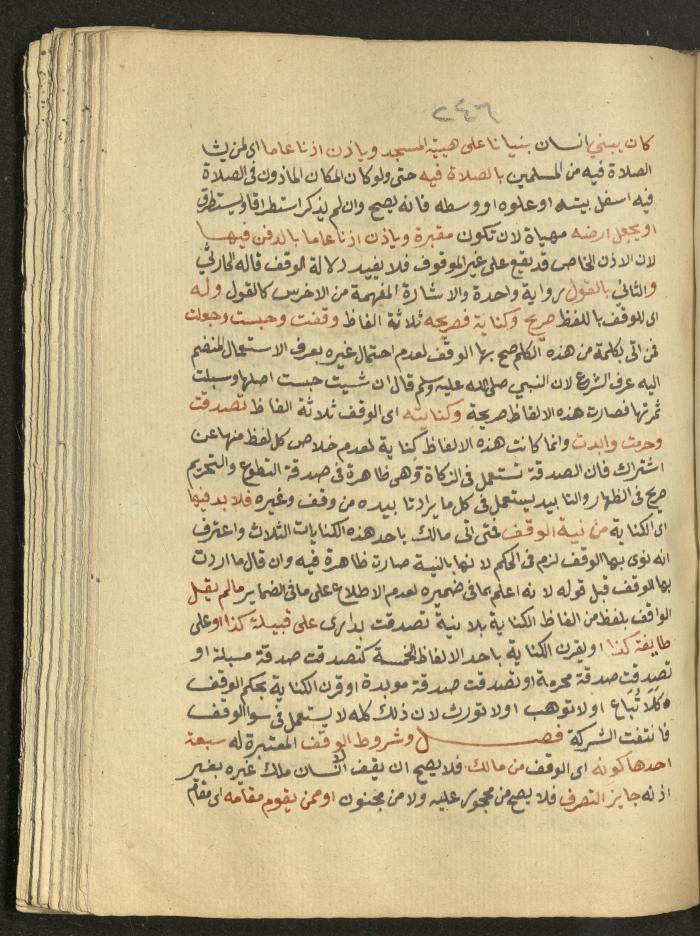 ٢٤٦
كان يبني انسان بنيانا على هيية المسجد وياذن اذنا عاما اى لمن يشا
الصلاة فيه من المسلمين بالصلاة فيه حتى ولو كان المكان الماذون فى الصلاة
فيه اسفل بيته او علوه او وسطه فانه يصح وان لم يذكر استطراقا ويستطرق
او يجعل ارضه مهياة لان تكون مقبرة وياذن اذنا عاما بالدفن فيها
لان الاذن الخاص قد يقع على غير الموقوف فلا يفيد دلالة الوقف قاله الحارثي
والثاني بالقول رواية واحدة والاشارة المفهمة من الاخرس كالقول وله
اى للوقف باللفظ صريح وكناية فصريحه ثلاثة الفاظ وقفت وحبست وجعلت
فمن اتى بكلمة من هذه الكلم صح بها الوقف لعدم احتمال غيره بعرف الاستعمال المنضم
اليه عرف الشرع لان النبي صلى الله عليه وسلم قال ان شيت حبست اصلها وسبلت
ثمرتها فصارت هذه الالفاظ صريحة وكنايته اى الوقف ثلاثة الفاظ تصدقت
وحرمت وابدت وانما كانت هذه الالفاظ كناية لعدم خلاص كل لفظ منها عن
اشتراك فان الصدقة تستعمل فى الزكاة وهى ظاهرة فى صدقة التطوع والتحريم
صريح فى الظهار والتابيد يستعمل فى كل ما يراد تابيده من وقف وغيره فلا بد فيها
اى الكناية من نية الوقف فمتى اتى مالك باحد هذه الكنايات الثلاث واعترف
انه نوى بها الوقف لزم فى الحكم لانها بالنية صارت ظاهرة فيه وان قال ما اردت
بها الوقف قبل قوله لانه اعلم بما فى ضميره لعدم الاطلاع على ما فى الضماير ما لم يقل
الواقف بلفظ من الفاظ الكناية بلا نية تصدقت بدارى على قبيلة كذا او على
طايفة كذا او يقرن الكناية باحد الالفاظ الخمسة كتصدقت صدقة مسبلة او
تصدقت صدقة محرمة او تصدقت صدقة موبدة او قرن الكناية بحكم الوقف
كلا تُبَاع او لا توهب او لا تورث لان ذلك كله لا يستعمل فى سوا الوقف
فانتفت الشركة فصل وشروط الوقف المعتبرة له سبعة
احدها كونه اى الوقف من مالك فلا يصح ان يقف انسان ملك غيره بغير
اذنه جايز التصرف فلا يصح من محجور عليه ولا من مجنون او ممن يقوم مقامه اى مقام